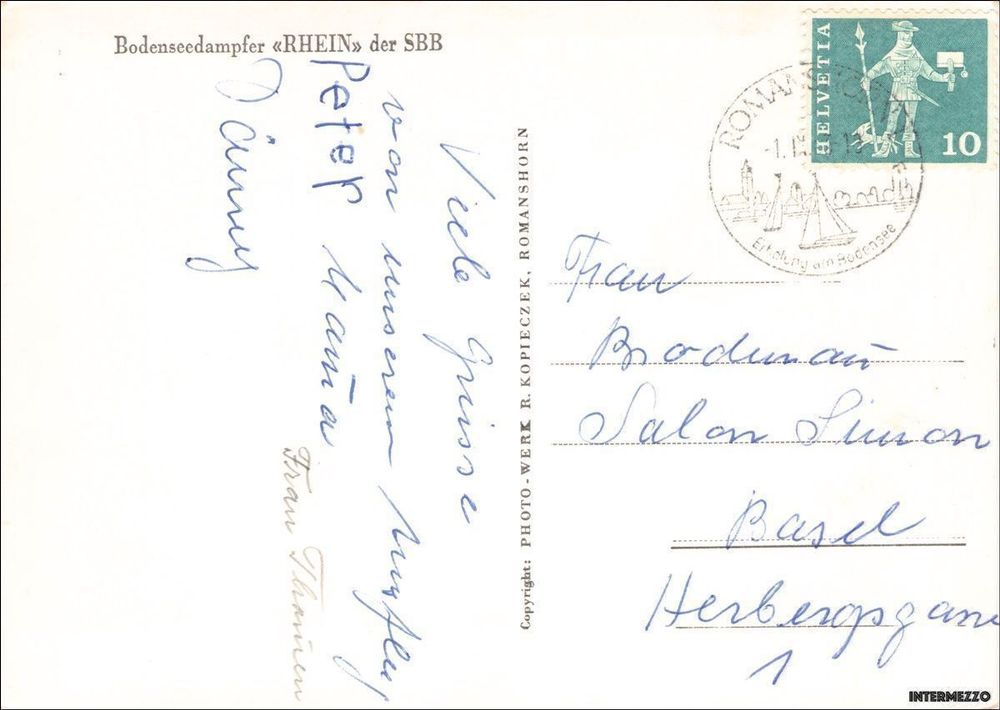 Bodenseedampfer «RHEIN» der SBB
HELVETIA
10
ROMANSHORN
Erholung am Bodensee
Viele Grüsse
von unserem Ausflug
Peter Mama
Dänny
Frau Thommen
Copyright: PHOTO-WERK R. KOPIECZEK, ROMANSHORN
Frau
Salon Simon
Basel
Herbergsgasse
1
INTERMEZZO